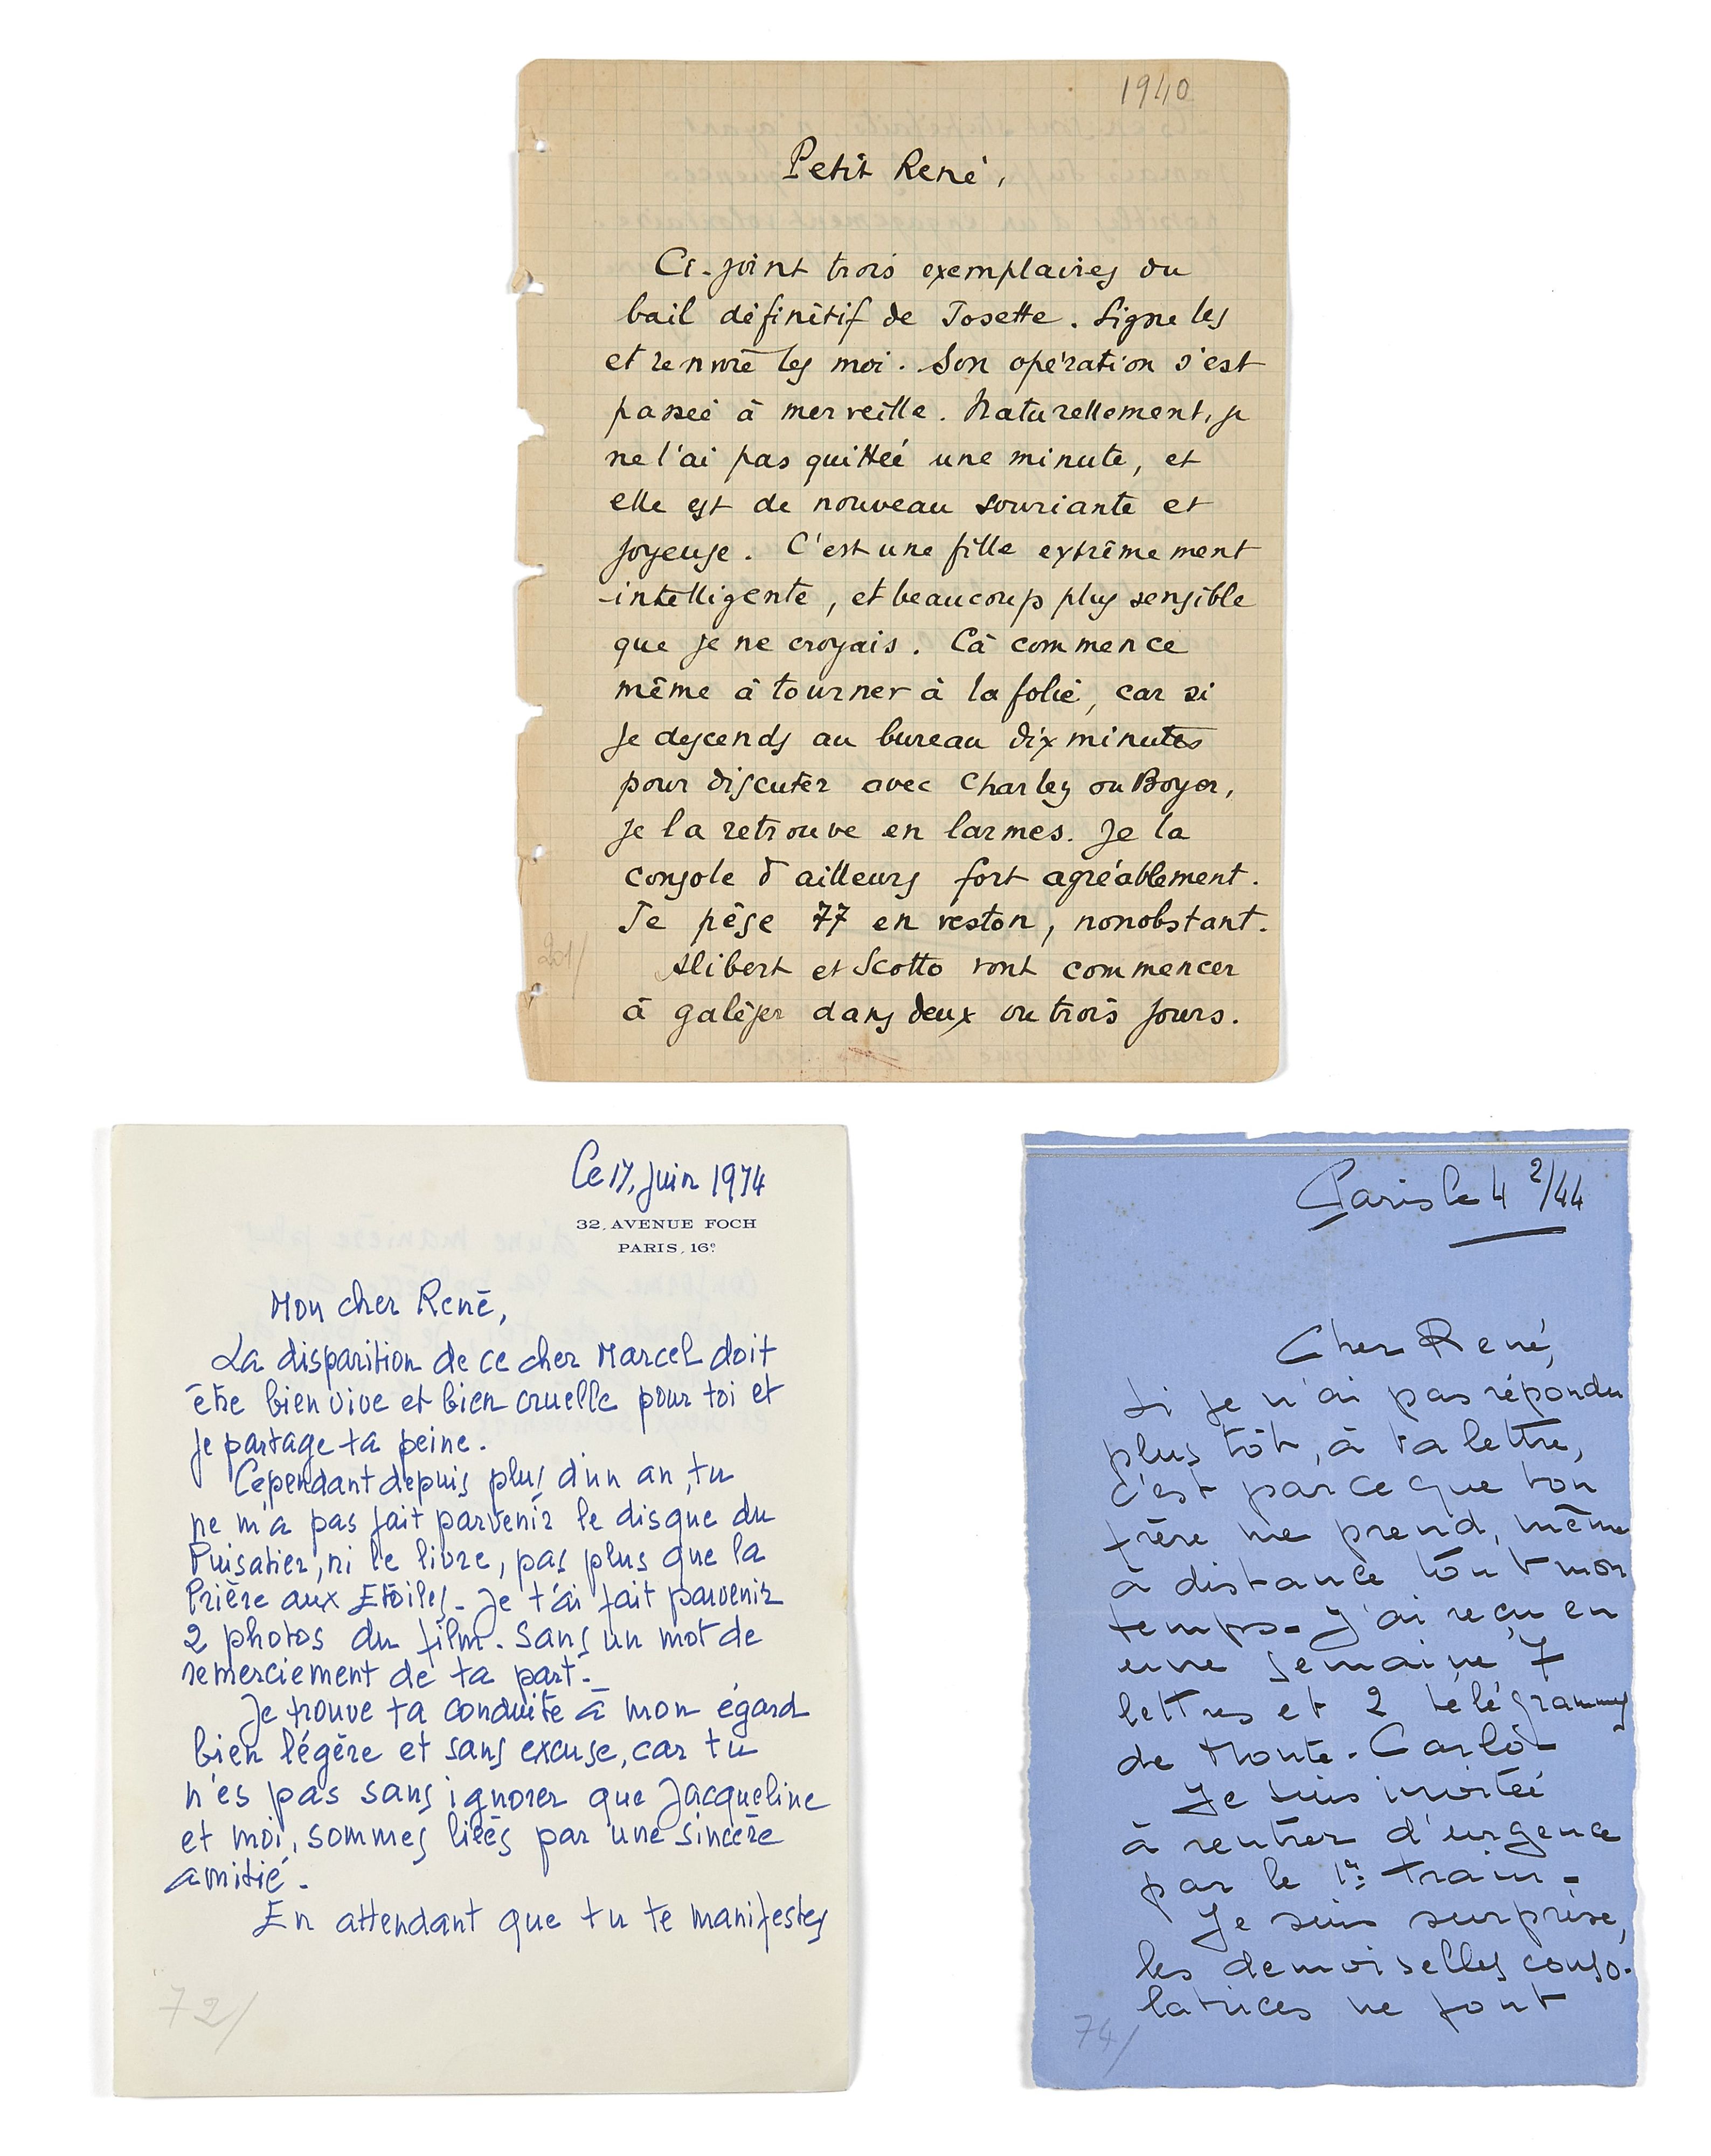 1940
Petit René,
Ci-joint trois exemplaires du
bail définitif de Josette. Signe les
et renvoie les moi. Son opération s'est
passée à merveille. Naturellement, je
ne l'ai pas quittée une minute, et
elle est de nouveau souriante et
joyeuse. C'est une fille extrêmement
intelligente, et beaucoup plus sensible
que je ne croyais. Cà commence
même à tourner à la folie, car si
je descends au bureau dix minutes
pour discuter avec Charley ou Boyer,
je la retrouve en larmes. Je la
console d'ailleurs fort agréablement.
Je pèse 77 en veston, nonobstant.
Alibert et Scotto vont commencer
à galéjer dans deux ou trois jours.
201/
Ce 17, Juin 1974
32, AVENUE FOCH
PARIS, 16e
Mon cher René,
La disparition de ce cher Marcel doit
être bien vive et bien cruelle pour toi et
je partage ta peine.
Cependant depuis plus d'un an, tu
ne m'a pas fait parvenir le disque du
Puisatier, ni le livre, pas plus que la
Prière aux Etoiles - Je t'ai fait parvenir
2 photos du film. Sans un mot de
remerciement de ta part.
Je trouve ta conduite à mon égard
bien légère et sans excuse, car tu
n'es pas sans ignorer que Jacqueline
et moi, sommes liées par une sincère
amitié.
En attendant que tu te manifestes
72/
Paris le 4 2/44
Cher René,
Si je n'ai pas répondu
plus tôt, à ta lettre,
c'est parce que ton
frère me prend, même
à distance tout mon
temps - J'ai reçu en
une semaine 7
lettres et 2 télégrammes
de Monte-Carlo -
Je suis invitée
à rentrer d'urgence
par le 1er train -
Je suis surprise,
les demoiselles conso-
latrices ne font
74/